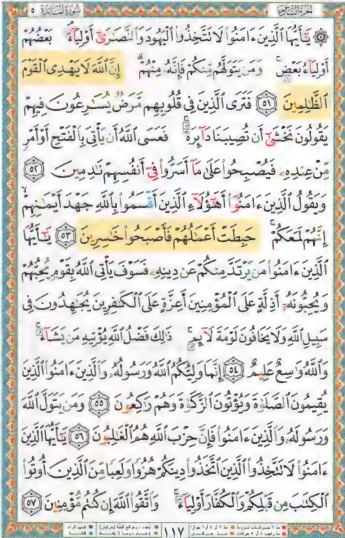 سُورَةُ المَائِدَةِ ٥
۞ يَٰٓأَيُّهَا ٱلَّذِينَ ءَامَنُوا۟ لَا تَتَّخِذُوا۟ ٱلْيَهُودَ وَٱلنَّصَٰرَىٰٓ أَوْلِيَآءَ ۘ بَعْضُهُمْ
أَوْلِيَآءُ بَعْضٍ ۚ وَمَن يَتَوَلَّهُم مِّنكُمْ فَإِنَّهُۥ مِنْهُمْ ۗ إِنَّ ٱللَّهَ لَا يَهْدِى ٱلْقَوْمَ
ٱلظَّٰلِمِينَ ٥١ فَتَرَى ٱلَّذِينَ فِى قُلُوبِهِم مَّرَضٌ يُسَٰرِعُونَ فِيهِمْ
يَقُولُونَ نَخْشَىٰٓ أَن تُصِيبَنَا دَآئِرَةٌ ۚ فَعَسَى ٱللَّهُ أَن يَأْتِىَ بِٱلْفَتْحِ أَوْ أَمْرٍ
مِّنْ عِندِهِۦ فَيُصْبِحُوا۟ عَلَىٰ مَآ أَسَرُّوا۟ فِىٓ أَنفُسِهِمْ نَٰدِمِينَ ٥٢
وَيَقُولُ ٱلَّذِينَ ءَامَنُوٓا۟ أَهَٰٓؤُلَآءِ ٱلَّذِينَ أَقْسَمُوا۟ بِٱللَّهِ جَهْدَ أَيْمَٰنِهِمْ ۙ
إِنَّهُمْ لَمَعَكُمْ ۚ حَبِطَتْ أَعْمَٰلُهُمْ فَأَصْبَحُوا۟ خَٰسِرِينَ ٥٣ يَٰٓأَيُّهَا
ٱلَّذِينَ ءَامَنُوا۟ مَن يَرْتَدَّ مِنكُمْ عَن دِينِهِۦ فَسَوْفَ يَأْتِى ٱللَّهُ بِقَوْمٍ يُحِبُّهُمْ
وَيُحِبُّونَهُۥٓ أَذِلَّةٍ عَلَى ٱلْمُؤْمِنِينَ أَعِزَّةٍ عَلَى ٱلْكَٰفِرِينَ يُجَٰهِدُونَ فِى
سَبِيلِ ٱللَّهِ وَلَا يَخَافُونَ لَوْمَةَ لَآئِمٍ ۚ ذَٰلِكَ فَضْلُ ٱللَّهِ يُؤْتِيهِ مَن يَشَآءُ ۚ
وَٱللَّهُ وَٰسِعٌ عَلِيمٌ ٥٤ إِنَّمَا وَلِيُّكُمُ ٱللَّهُ وَرَسُولُهُۥ وَٱلَّذِينَ ءَامَنُوا۟ ٱلَّذِينَ
يُقِيمُونَ ٱلصَّلَوٰةَ وَيُؤْتُونَ ٱلزَّكَوٰةَ وَهُمْ رَٰكِعُونَ ٥٥ وَمَن يَتَوَلَّ ٱللَّهَ
وَرَسُولَهُۥ وَٱلَّذِينَ ءَامَنُوا۟ فَإِنَّ حِزْبَ ٱللَّهِ هُمُ ٱلْغَٰلِبُونَ ٥٦ يَٰٓأَيُّهَا ٱلَّذِينَ
ءَامَنُوا۟ لَا تَتَّخِذُوا۟ ٱلَّذِينَ ٱتَّخَذُوا۟ دِينَكُمْ هُزُوًا وَلَعِبًا مِّنَ ٱلَّذِينَ أُوتُوا۟
ٱلْكِتَٰبَ مِن قَبْلِكُمْ وَٱلْكُفَّارَ أَوْلِيَآءَ ۚ وَٱتَّقُوا۟ ٱللَّهَ إِن كُنتُم مُّؤْمِنِينَ ٥٧
١١٧